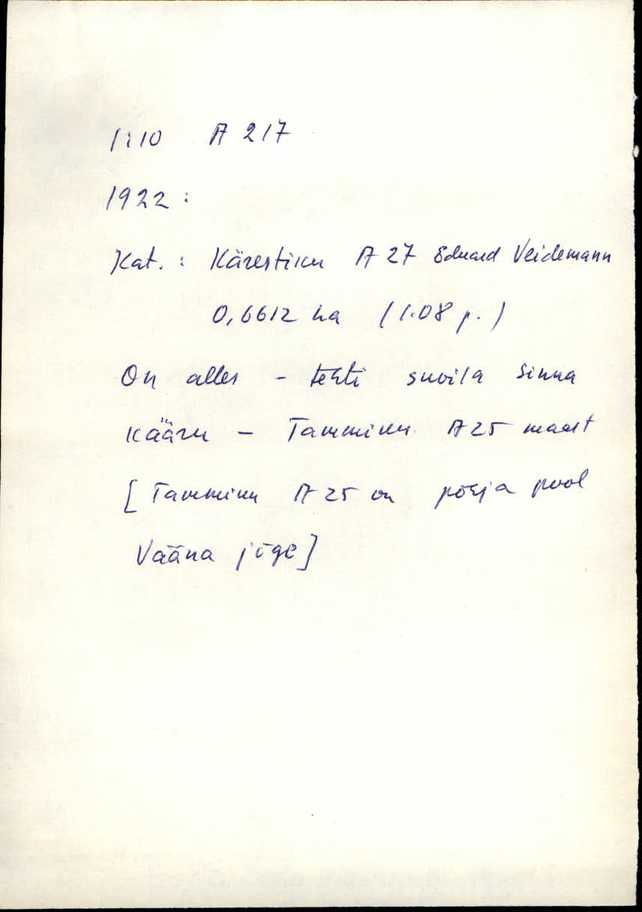 1:10 A 217
1922 :
Kat. : Kärestiku A 27 Eduard Veidemann
0,6612 ha (1.08 p.)
On alles – tehti suvila sinna
Kääru – Tammiku A25 maast
[Tammiku A 25 on põhja pool
Vääna jõge]